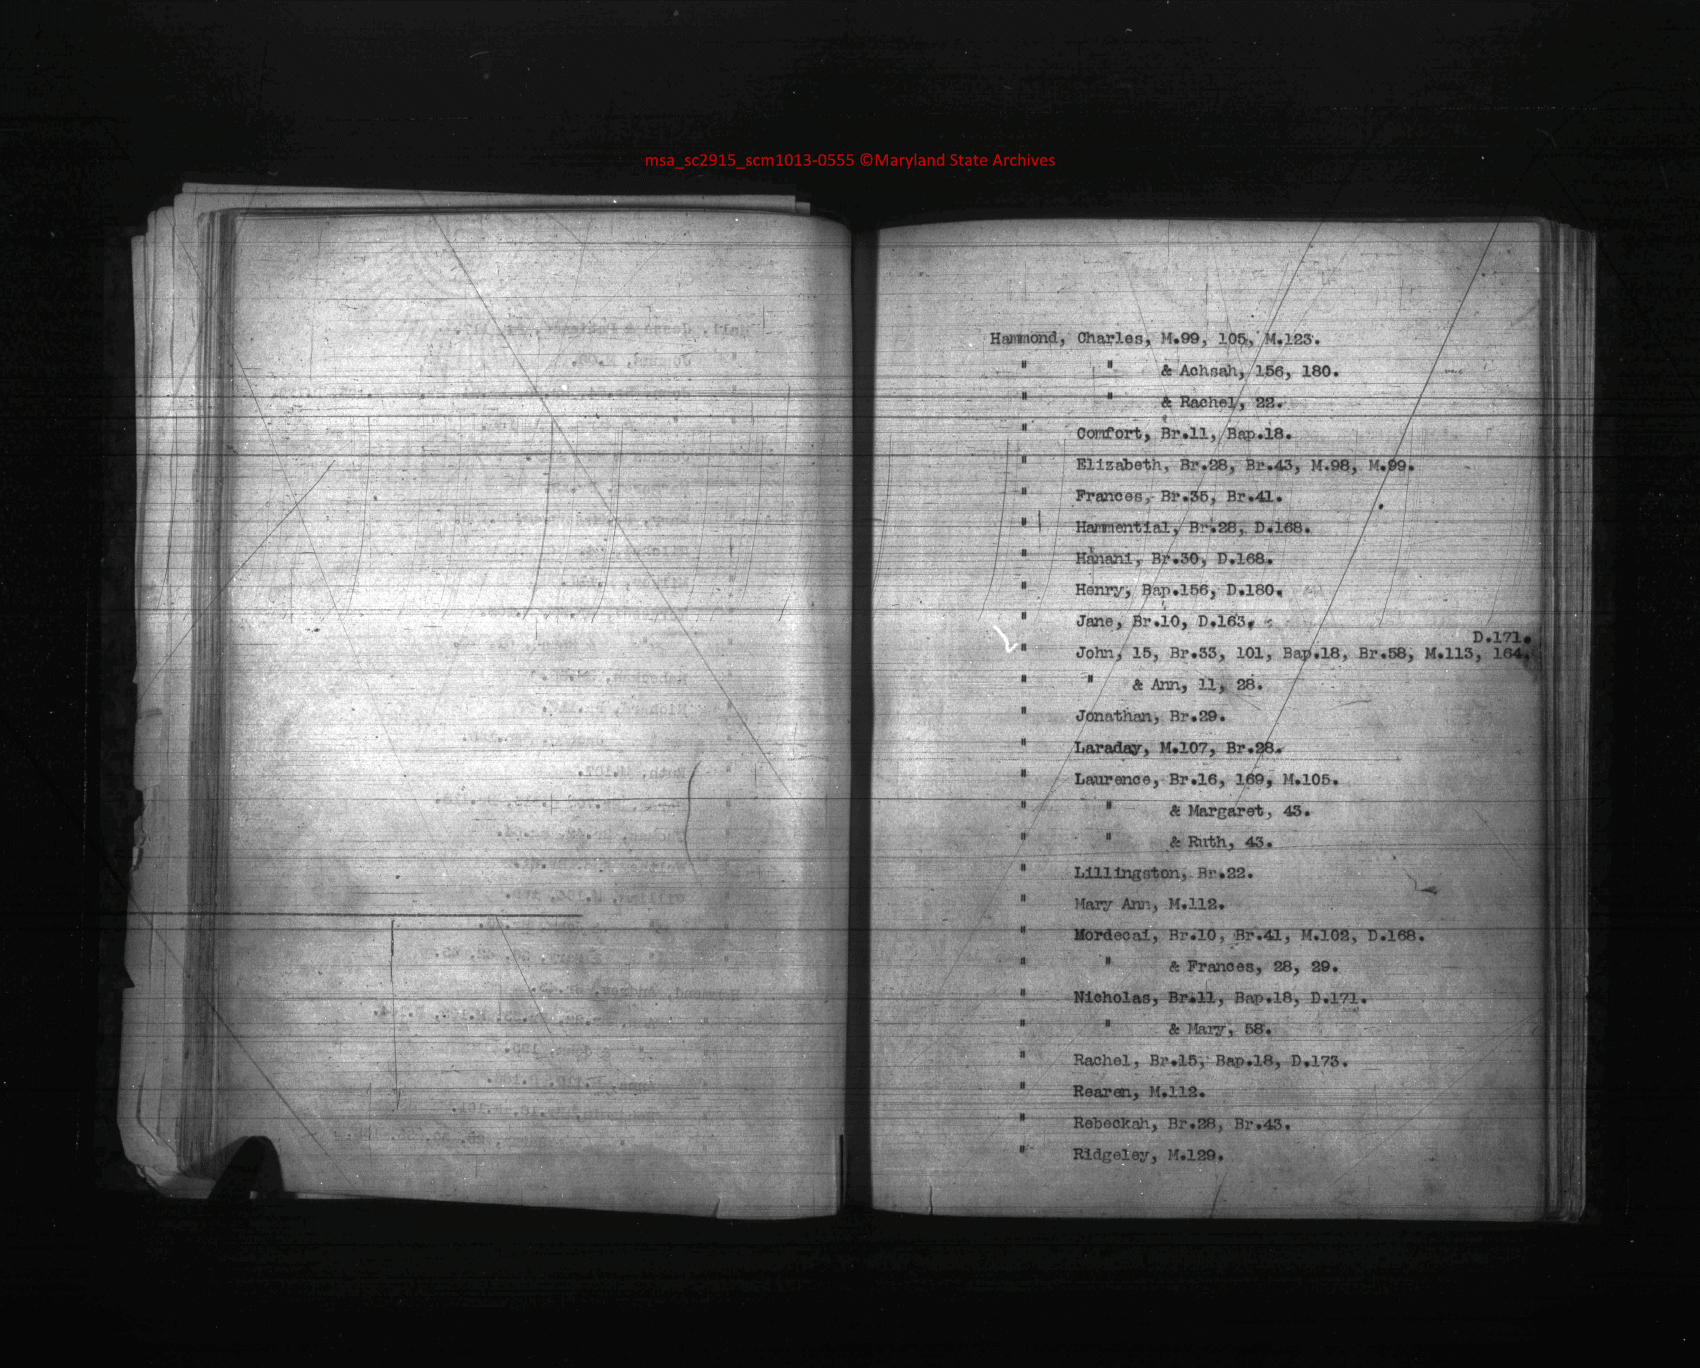 msa_sc2915_scm1013-0555 ©Maryland State Archives
Hammond, Charles, M.99, 105, M.123.
" " & Achsah, 156, 180.
" " & Rachel, 22.
" Comfort, Br.11, Bap.18.
" Elizabeth, Br.28, Br.43, M.98, M.99.
" Frances, Br.35, Br.41.
" Hammential, Br.28, D.168.
" Hanani, Br.30, D.168.
" Henry, Bap.156, D.180.
" Jane, Br.10, D.163.
D.171.
" John, 15, Br.33, 101, Bap.18, Br.58, M.113, 164,
" " & Ann, 11, 28.
" Jonathan, Br.29.
" Laraday, M.107, Br.28.
" Laurence, Br.16, 169, M.105.
" " & Margaret, 43.
" " & Ruth, 43.
" Lillingston, Br.22.
" Mary Ann, M.112.
" Mordecai, Br.10, Br.41, M.102, D.168.
" " & Frances, 28, 29.
" Nicholas, Br.11, Bap.18, D.171.
" " & Mary, 58.
" Rachel, Br.15, Bap.18, D.173.
" Rearen, M.112.
" Rebeckah, Br.28, Br.43.
" Ridgeley, M.129.